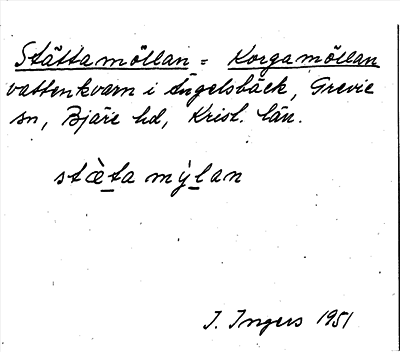 Stättamöllan = Korgamöllan
vattenkvarn i Ängelsbäck, Grevie
sn, Bjäre hd, Krist. län.
stæ̀ta mỳlan
I. Ingers 1951